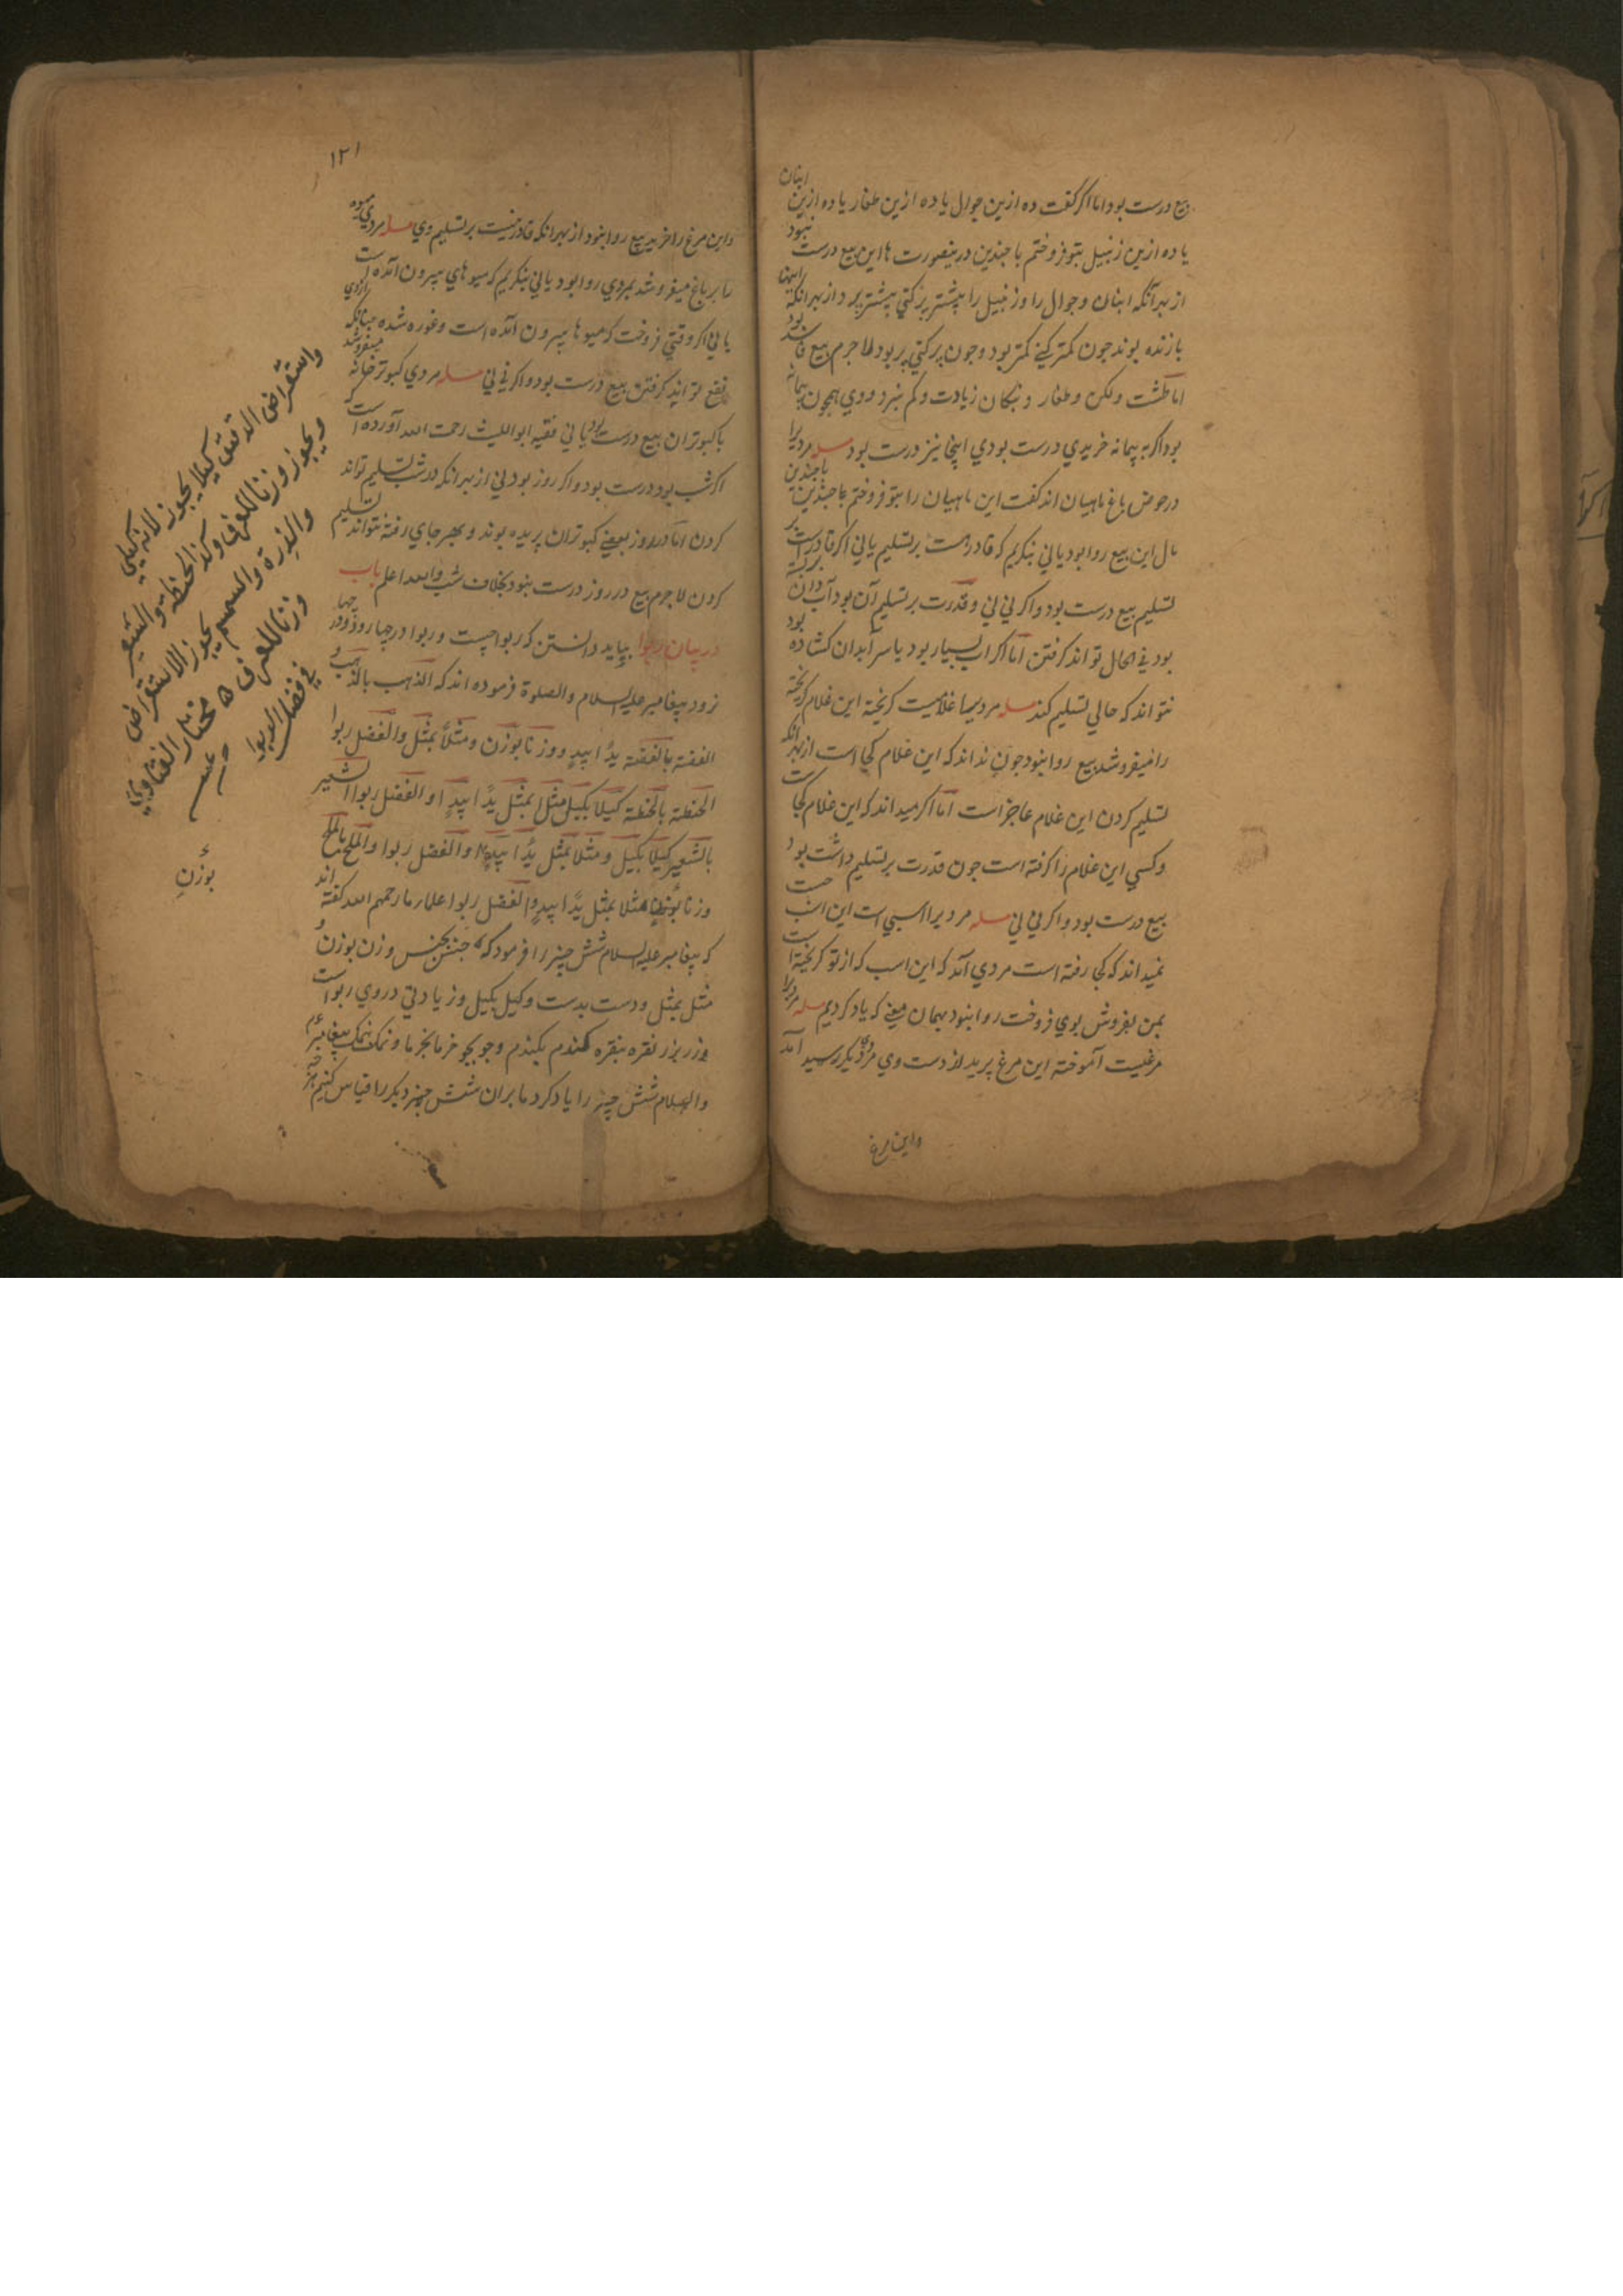 بیع درست بود اما اکر کفت ده ازین جوال یا ده ازین طغار یا ده ازین انبان
یا ده ازین زنبیل بتو فروختم با چندین درینصورت ها این بیع درست نبود
از بهر آنکه انبان و جوال را و زنبیل را بیشتر پر کنی بیشتر برد از بهر آنکه اینها
یازنده بوند جون کمتر کنی کمتر بود وجون پر کنی پر بود لاجرم بیع فاسد بود
اما طشت ولکن وطغار و نبکان زیادت وکم نبرد ووی همچون پیمانه
بود اکر به پیمانه خریدی درست بودی اینجا نیز درست بود مسله مردیرا
در حوض باغ ماهیان اند کفت این ماهیان را بتو فروختم با چندین
مال این بیع روا بود یا نی بنکریم که قادر هست بر تسلیم یا نی اکر قادرست بر
تسلیم بیع درست بود و اکر نی نی و قدرت بر تسلیم آن بود آب دان بسته
بود فی الحال تواند کرفتن اما اکر آب بسیار بود یا سر آبدان کشاده بود
نتواند که حالی تسلیم کند مسله مردیرا غلامیست کریخته این غلام کریخته
را میفروشد بیع روا نبود جون نداند که این غلام کجا است از بهر آنکه
تسلیم کردن این غلام عاجز است اما اکر میداند که این غلام کجاست
وکسی این غلام را کرفته است جون قدرت بر تسلیم داشت بود
بیع درست بود و اکر نی نی مسله مردیرا اسبی است این اسب
نمیداند که کجا رفته است مردی آمد که این اسب که از تو کریخته است
بمن بفروش بوی فروخت روا نبود بهمان معنی که یاد کردیم مسله مردیرا
مرغیست آموخته این مرغ پرید از دست وی مردی دیکر رسید آمد
واین مرغ
۱۲۱
واین مرغ را خرید بیع روا نبود از بهر آنکه قادر نیست بر تسلیم وی مسله مردی میوه
را بر باغ میفروشد بمردی روا بود یا نی بنکریم که میوهای بیرون آمده است
یا نی اکر وقتی فروخت که میوها بیرون آمده است وغوره شده چنانکه ازوی
نفع تواند کرفتن بیع درست بود و اکر نی نی مسله مردی کبوتر خانه میفروشد
با کبوتران بیع درست بود یا نی فقیه ابو اللیث رحمت الله آورده است که
اکر شب بود درست بود و اکر روز بود نی از بهر آنکه در شب تسلیم تواند
کردن اما در روز بعضی کبوتران پریده بوند و بهر جای رفته نتواند تسلیم
کردن لاجرم بیع در روز درست نبود بخلاف شب والله اعلم باب
در بیان ربوا بباید دانستن که ربوا چیست و ربوا در چهار
رود پیغامبر علیه السلام والصلوة فرموده اند که الذهب بالذهب و
الفضة بالفضة یدًا بیدٍ ووزنا بوزن ومثلاً بمثل والفضل ربوا
الحنطة بالحنطة کیلا بکیل مثل بمثل یدًا بیدٍ او الفضل ربوا الشعیر
بالشعیر کیلا بکیل ومثلا بمثل یدًا بیدٍ والفضل ربوا والملح بالملح
وزنا مثلا بمثل یدًا بیدٍ والفضل ربوا علماء ما رحمهم الله کفته اند
که پیغامبر علیه السلام شش چیز را فرمود که جنس بجنس وزن بوزن و
مثل بمثل ودست بدست وکیل بکیل و زیادتی در وی ربواست
وزر بزر نقره بنقره کندم بکندم وجو بجو خرما بخرما ونمک بنمک پیغامبر
والسلام شش چیز را یاد کرد ما بران شش چیز دیکر را قیاس کنیم
واستقراض الدقیق کیلا یجوز لانه کیلی
ویجوز وزنا للعرف وکذا الحنطة والشعیر
والذرة والسمسم یجوز الاستقراض
وزنا للعرف مختار الفتاوی
فی فصل الربوا
بوزنٍ